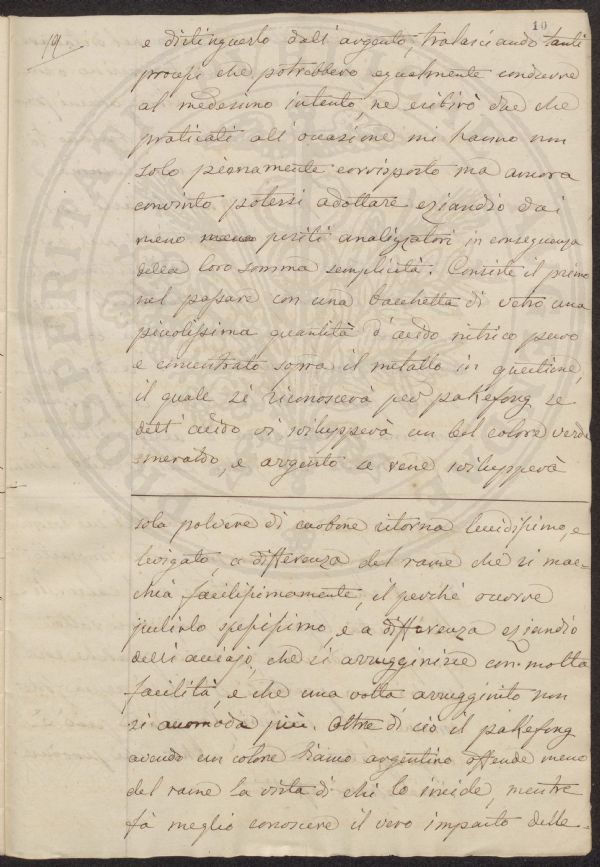 19
10
e distinguerlo dall'argento, tralasciando tanti
processi che potrebbero egualmente condurre
al medesimo intento, ne esibirò due che
praticati all'occasione mi hanno non
solo pienamente corrisposto ma ancora
convinto potersi adottare eziandio dai
meno meno periti analizzatori in conseguenza
della loro somma semplicità. Consiste il primo
nel passare con una bacchetta di vetro una
piccolissima quantità d'acido nitrico puro
e concentrato sopra il metallo in questione,
il quale si riconoscerà per pakefong se
dell'acido vi svilupperà un bel colore verde
smeraldo, e argento se ne svilupperà
sola polvere di carbone ritorna lucidissimo, e
levigato, a differenza del rame che si mac=
chia facilissimamente, il perché occorre
pulirlo spessissimo, e a differenza eziandio
dell'acciajo, che si arrugginisce con molta
facilità, e che una volta arrugginito non
si accomoda più. Oltre di ciò il pakefong
avendo un colore bianco argentino offende meno
del rame la vista di chi lo incide, mentre
fà meglio conoscere il vero impasto delle